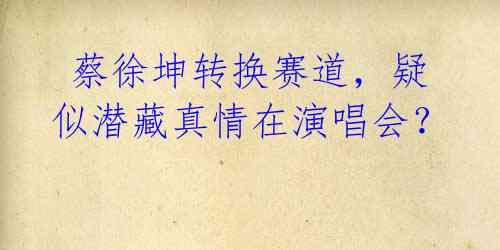 蔡徐坤转换赛道，疑
似潜藏真情在演唱会？